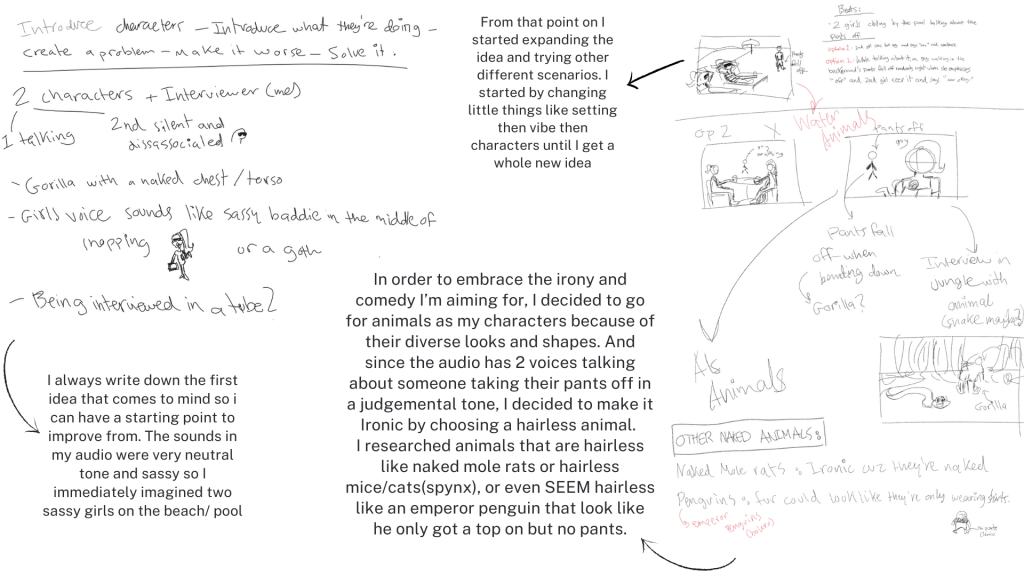 Introduce characters – Introduce what they're doing –
create a problem – make it worse – Solve it.
2 characters + Interviewer (me)
1 talking
2nd silent and
dissassociated
- Gorilla with a naked chest/torso
- Girls voice sounds like sassy baddie in the middle of
shopping
or a goth
- Being interviewed in a tube?
I always write down the first
idea that comes to mind so i
can have a starting point to
improve from. The sounds in
my audio were very neutral
tone and sassy so I
immediately imagined two
sassy girls on the beach/ pool
From that point on I
started expanding the
idea and trying other
different scenarios. I
started by changing
little things like setting
then vibe then
characters until I get a
whole new idea
In order to embrace the irony and
comedy I'm aiming for, I decided to go
for animals as my characters because of
their diverse looks and shapes. And
since the audio has 2 voices talking
about someone taking their pants off in
a judgemental tone, I decided to make it
Ironic by choosing a hairless animal.
I researched animals that are hairless
like naked mole rats or hairless
mice/cats(spynx), or even SEEM hairless
like an emperor penguin that look like
he only got a top on but no pants.
Beats:
- 2 girls chilling by the pool talking about the
pants off
option 1:
option 2: while talking about it, a guy walking in the
background's pants fall off
Pants
fall
off
Water
Animals
op 2
X
pants off
guy
Pants fall
off when
bending down
Gorilla?
Interview in
jungle with
animal
(snake maybe?)
Gorilla
As
Animals
OTHER NAKED ANIMALS:
Naked Mole rats : Ironic cuz they're naked
Penguins : fur could look like they're only wearing shirts.
emperor
penguins